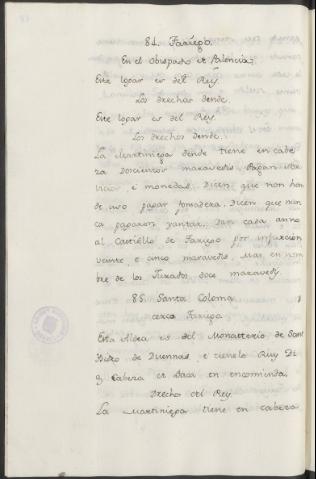 84. Fariego.
En el Obispado de Palencia.
Este logar es del Rey.
Los drechos dende.
Este logar es del Rey.
Los drechos dende.
La Martiniega dende tiene en cabe
za doscientos maravedis. Pagan ser
vicios, e monedas. Dicen que non han
de uso pagar fonsadera. Dicen que non
ca pagaron yantar. Dan cada anno
al Castiello de Fariego por infurcion
veinte e cinco maravedis, mas en nom
bre de los Jurados doce maravedis.
85. Santa Coloma
cerca Fariega
Esta Aldea es del Monasterio de Sant
Isidro de Duennas, e tienelo Ruy Di
az Cabeza de Baca en encomienda.
Drecho del Rey.
La Martiniega tiene en cabeza